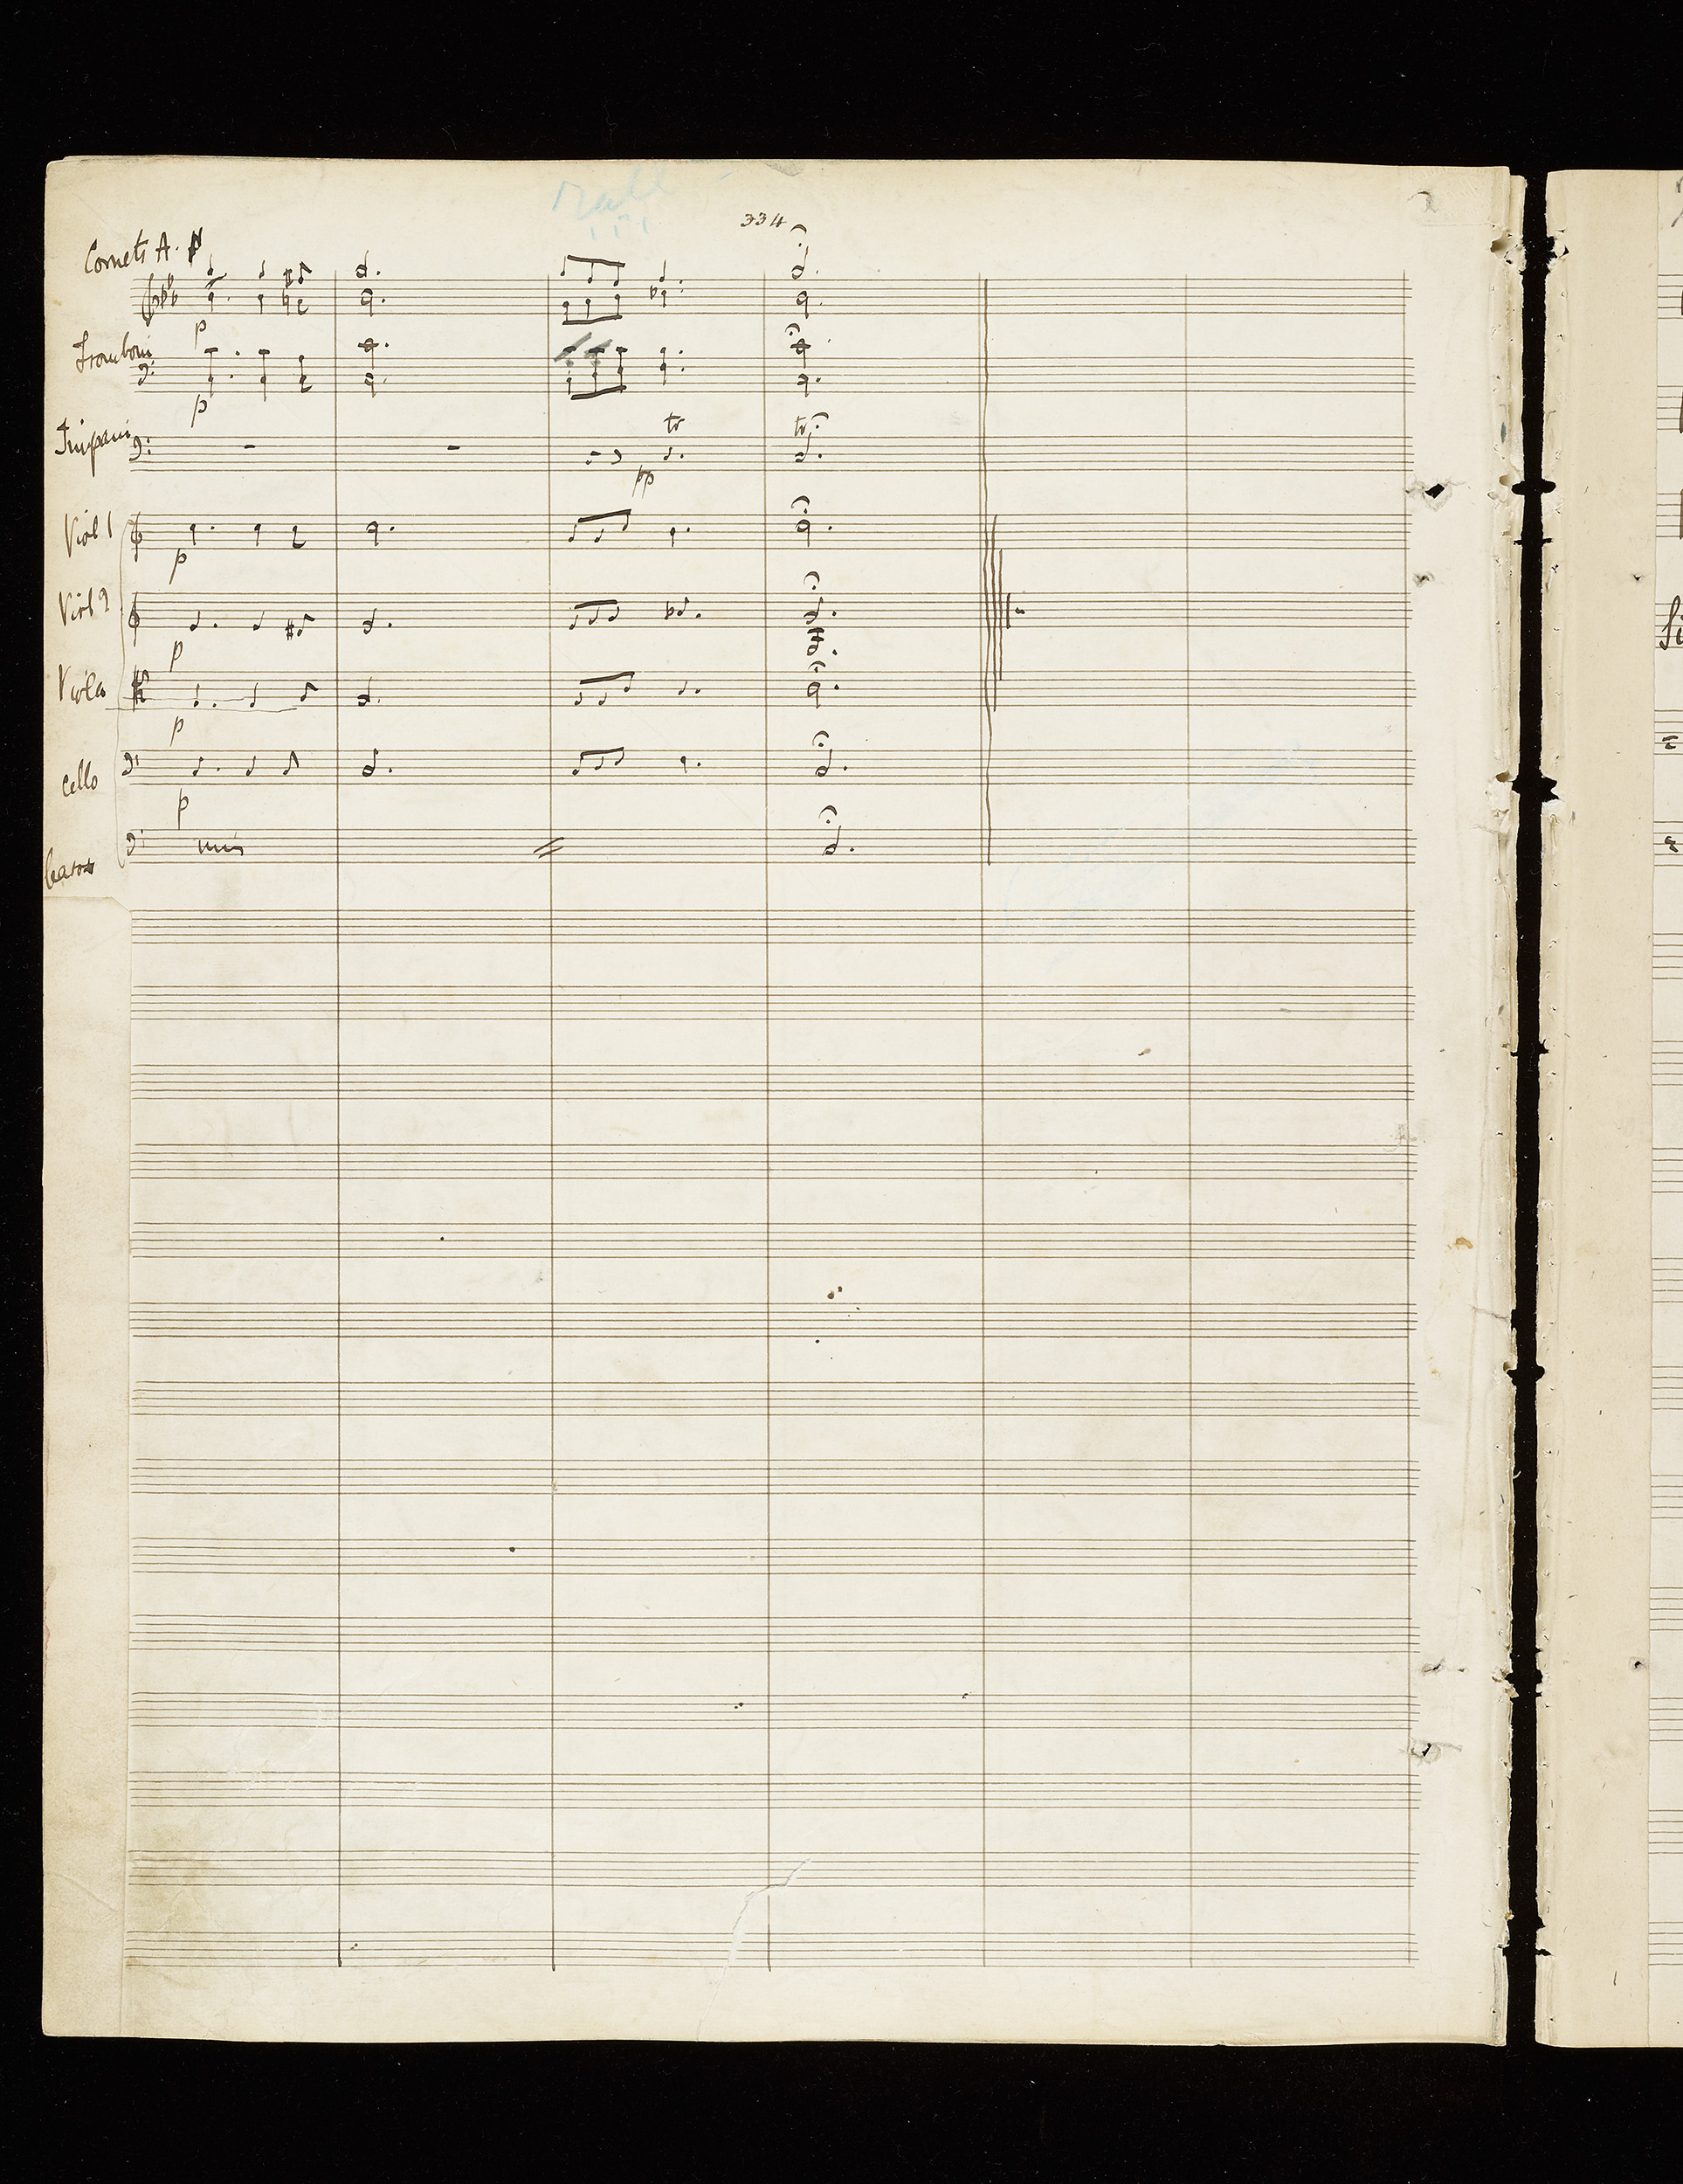 Rall
334
Cornets A.
p
Tromboni
p
Timpani
tr tr
pp
Viol 1
p
Viol 2
p
Viola
p
Cello
p
unis
Basso